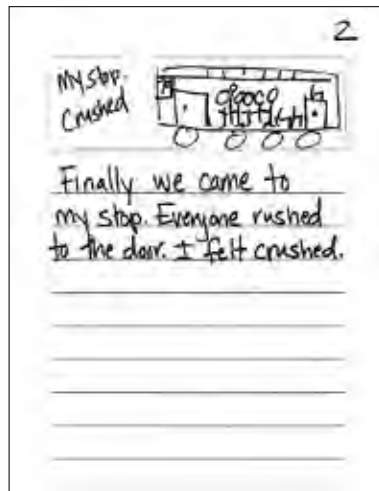 2
My stop.
Crushed
Finally we came to
my stop. Everyone rushed
to the door. I felt crushed.